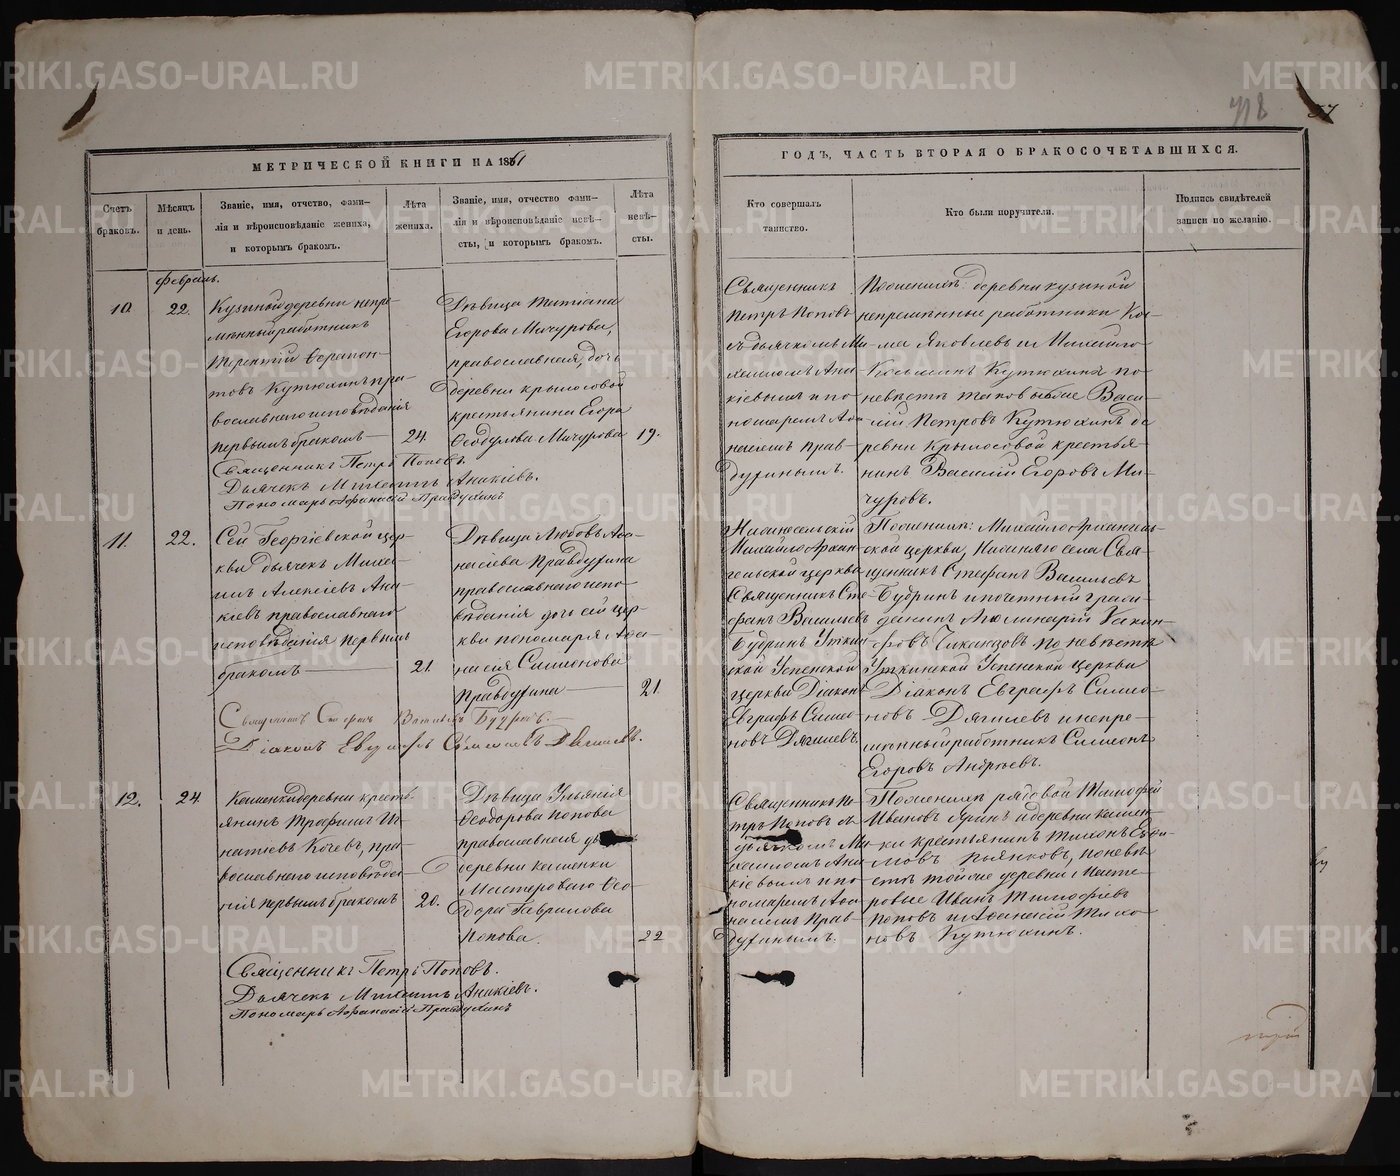 418
57
МЕТРИЧЕСКОЙ КНИГИ НА 1861
Счетъ браковъ.
Мѣсяцъ и день.
Званіе, имя, отчество, фами-
лія и вѣроисповѣданіе жениха,
и которымъ бракомъ.
Лѣта жениха.
Званіе, имя, отчество фами-
лія и вѣроисповѣданіе невѣ-
сты, и которымъ бракомъ.
Лѣта невѣ-
сты.
Февраль.
10.
22.
Кузиной деревни непре-
мѣнный работникъ
Терентій Ферапон-
товъ Кутюхинъ пра-
вославнаго исповѣданія
первымъ бракомъ
24.
Дѣвица Татіана
Егорова Мичурова,
православная, дочь
деревни Крылосовой
крестьянина Егора
Ѳеодулова Мичурова
19.
Священникъ Петръ Поповъ.
Дьячекъ Михаилъ Аникіевъ.
Пономарь Афанасій Правдухинъ
11.
22.
Сей Георгіевской цер-
кви дьячекъ Миха-
илъ Алексіевъ Ани-
кіевъ православнаго
исповѣданія первымъ
бракомъ
21.
Дѣвица Любовь Аѳа-
насіева Правдухина
православнаго испо-
вѣданія дочь сей цер-
кви пономаря Аѳа-
насія Симеонова
Правдухина
21.
Священникъ Стефанъ Васильевъ Будринъ.
Діаконъ Евграфъ Симеоновъ Дягилевъ.
12.
24.
Каменки деревни кресть-
янинъ Трофимъ Иг-
натіевъ Кочевъ, пра-
вославнаго исповѣда-
нія первымъ бракомъ
20.
Дѣвица Ульянія
Ѳеодорова Попова
православная дочь
деревни Каменки
Мастероваго Ѳео-
дора Гаврилова
Попова.
22
Священникъ Петръ Поповъ.
Дьячекъ Михаилъ Аникіевъ.
Пономарь Афанасій Правдухинъ
ГОДЪ, ЧАСТЬ ВТОРАЯ О БРАКОСОЧЕТАВШИХСЯ.
Кто совершалъ
таинство.
Кто были поручители.
Подпись свидѣтелей
записи по желанію.
Священникъ
Петръ Поповъ
съ дьячкомъ Ми-
хаиломъ Ани-
кіевымъ и по-
номаремъ Аѳа-
насіемъ Прав-
духинымъ.
По женихѣ: деревни Кузиной
непремѣнные работники Кос-
ма Яковлевъ и Михайло
Косминъ Кутюхины по
невѣстѣ таковые же Васи-
лій Петровъ Кутюхинъ де
ревни Крылосовой крестья-
нинъ Василій Егоровъ Ми-
чуровъ.
Михайло Архан-
гельской церкви
Священникъ Сте-
фанъ Васильевъ
Будринъ Уткин
ской Успенской
церкви Діаконъ
Евграфъ Симео-
новъ Дягилевъ.
По женихѣ: Михайло Архангель-
ской церкви, села Свя-
щенникъ Стефанъ Васильевъ
Будринъ и почетный граж-
данинъ
по невѣстѣ
Уткинской Успенской церкви
Діаконъ Евграфъ Симео-
новъ Дягилевъ и непре-
мѣнный работникъ Симеонъ
Егоровъ Андреевъ.
Священникъ Пе-
тръ Поповъ съ
дьячкомъ Ми-
хаиломъ Ани-
кіевымъ и по-
номаремъ Аѳа-
насіемъ Прав-
духинымъ.
По женихѣ рядовой Тимофей
Ивановъ и деревни Камен-
ки крестьянинъ Тихонъ Евфи-
мовъ Пьянковъ, по невѣ-
стѣ той же деревни Масте-
ровые Иванъ Тимофіевъ
Поповъ и Афанасій Тихо-
новъ Кутюхинъ.
METRIKI.GASO-URAL.RU